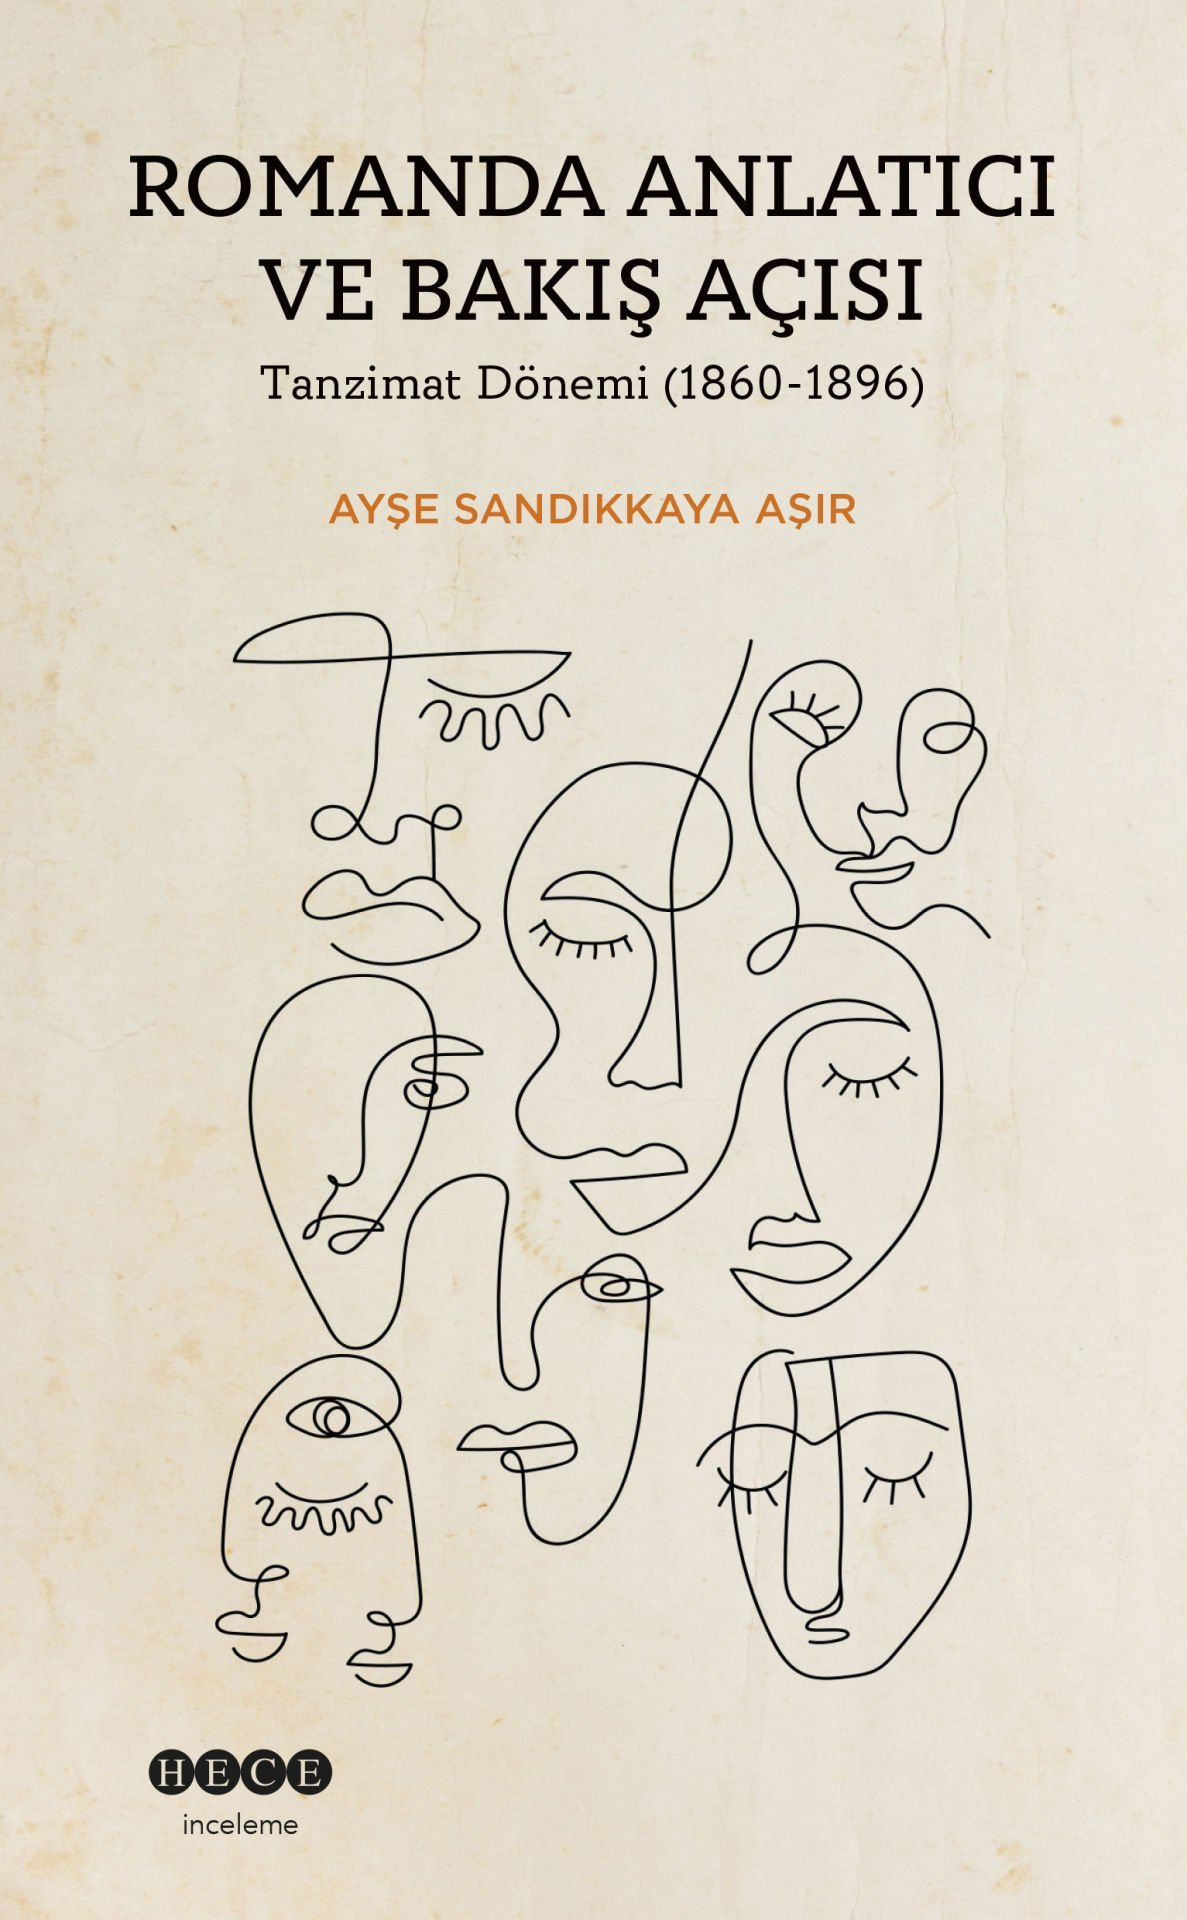 ROMANDA ANLATICI
VE BAKIŞ AÇISI
Tanzimat Dönemi (1860-1896)
AYŞE SANDIKKAYA AŞIR
HECE
inceleme